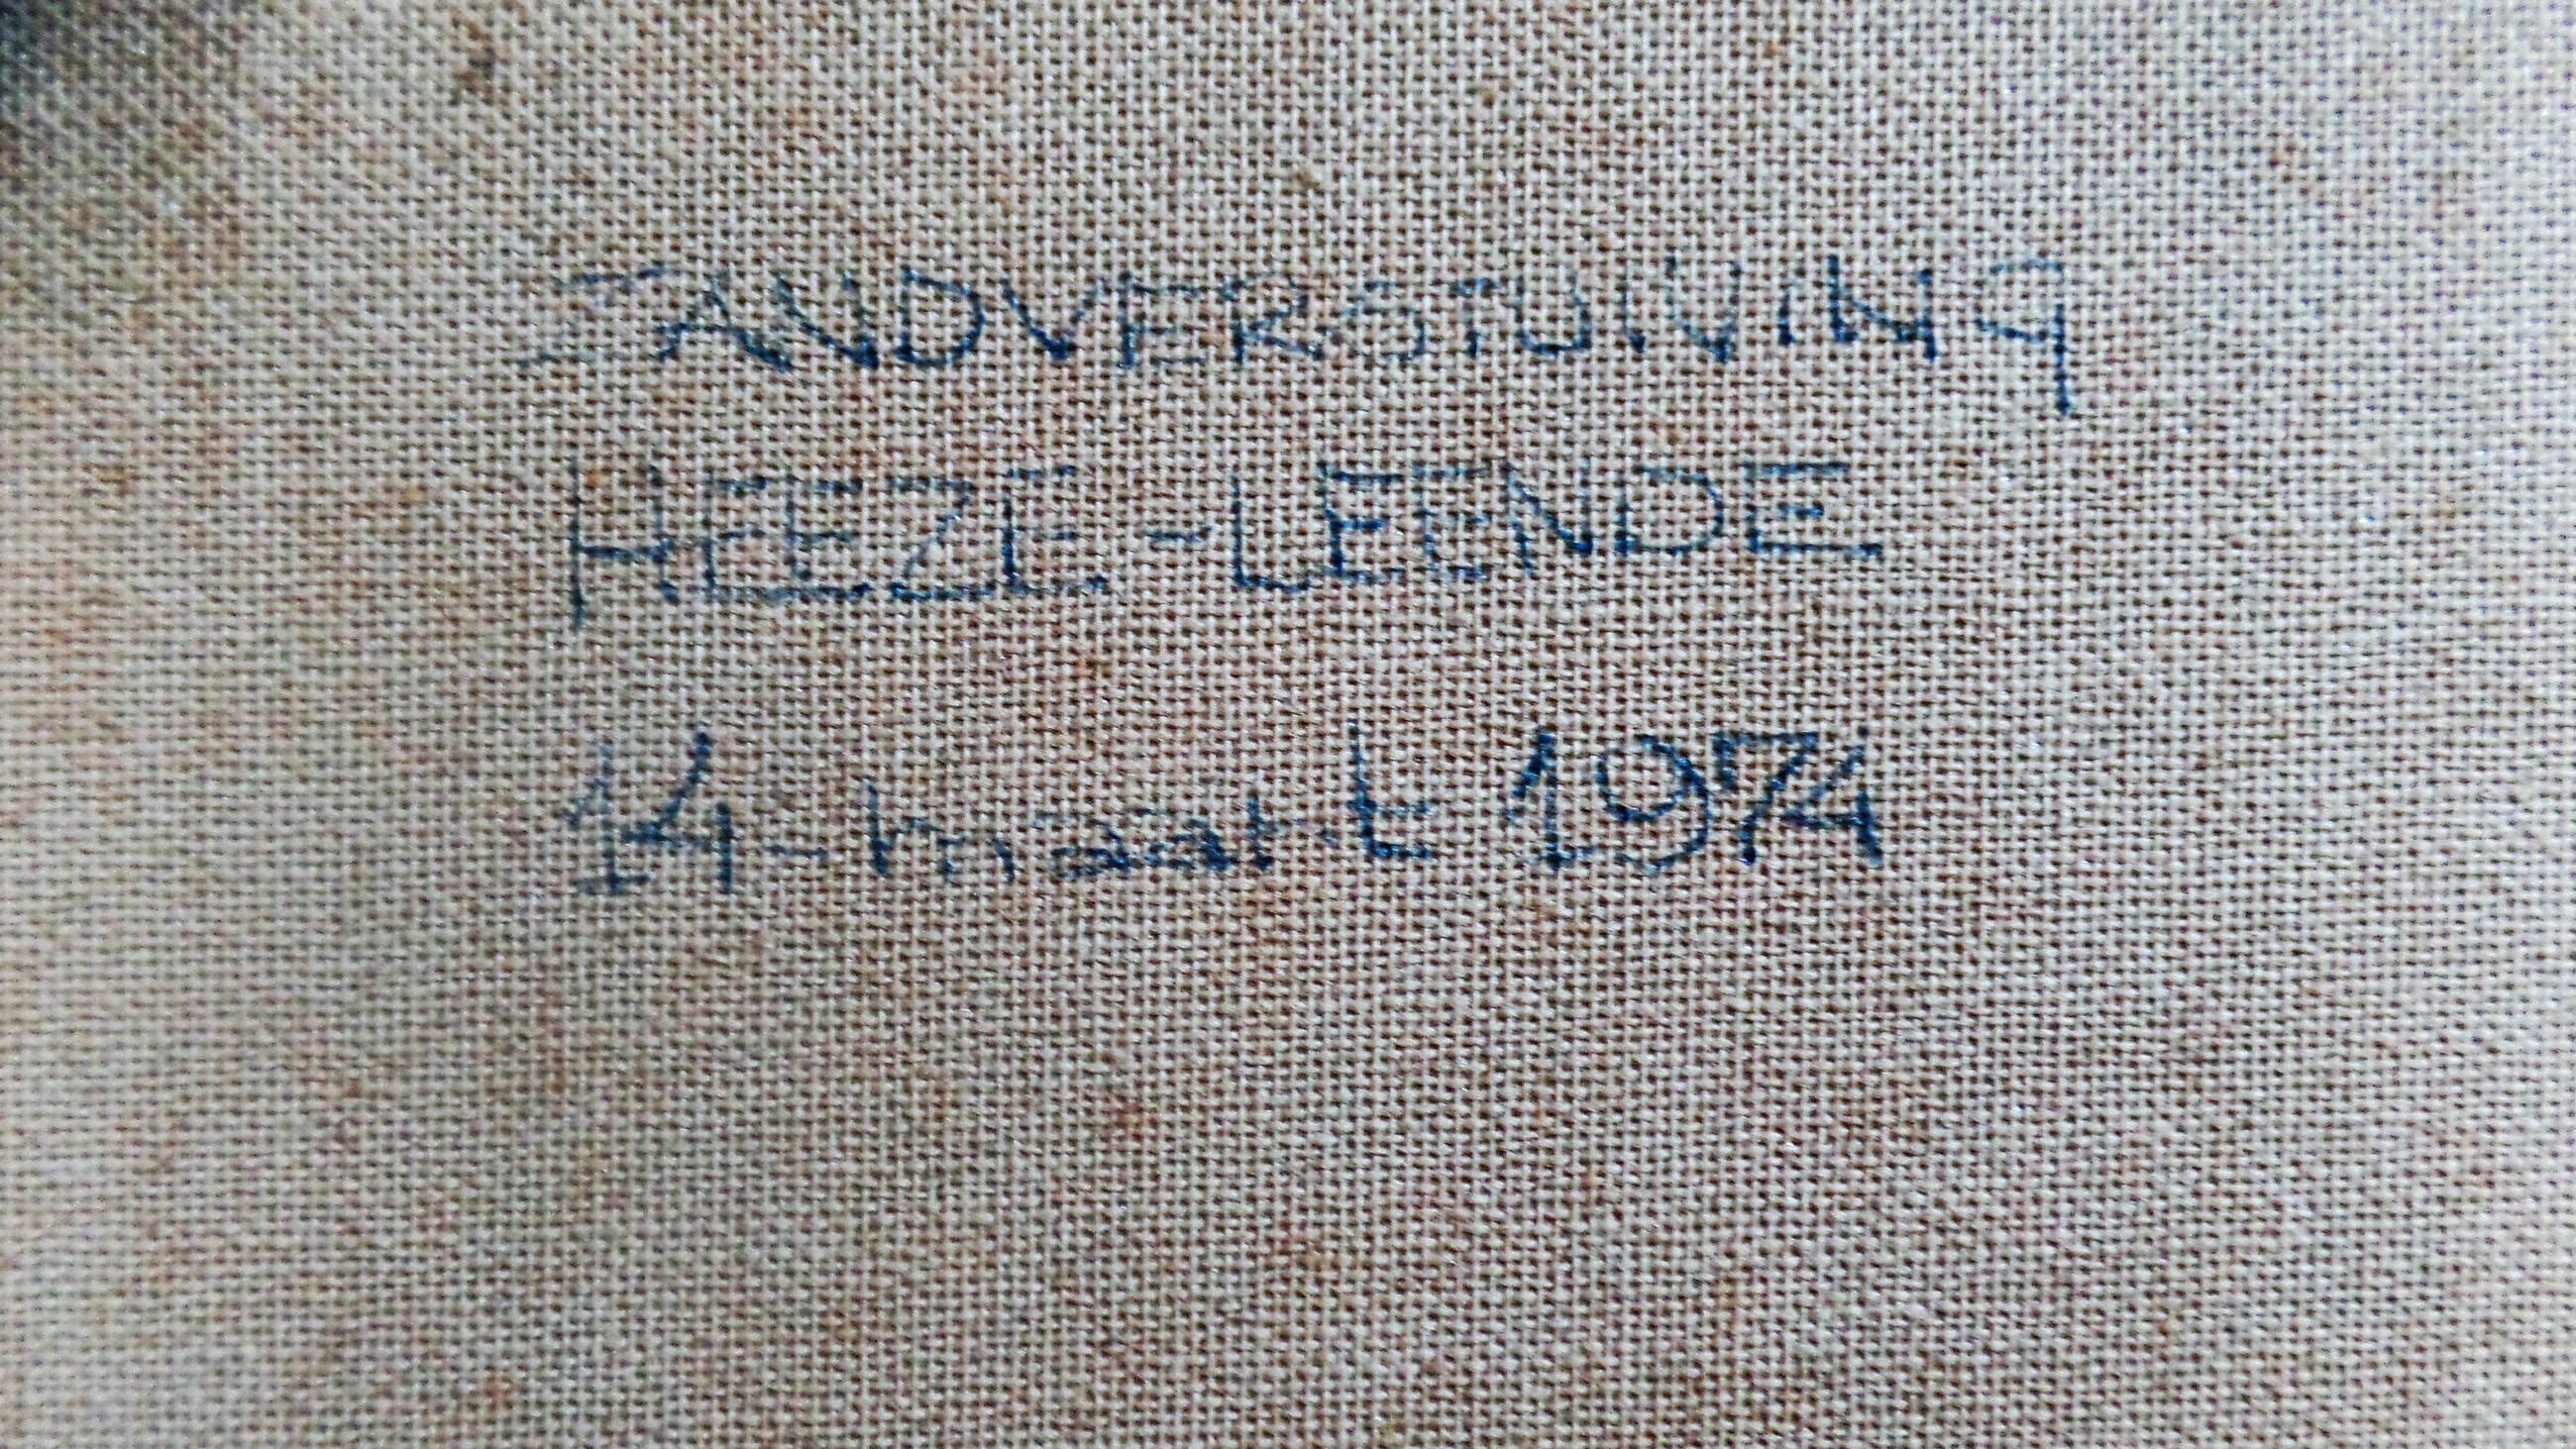 ZANDVERSTUIVING
HEEZE-LEENDE
14-maart 1974